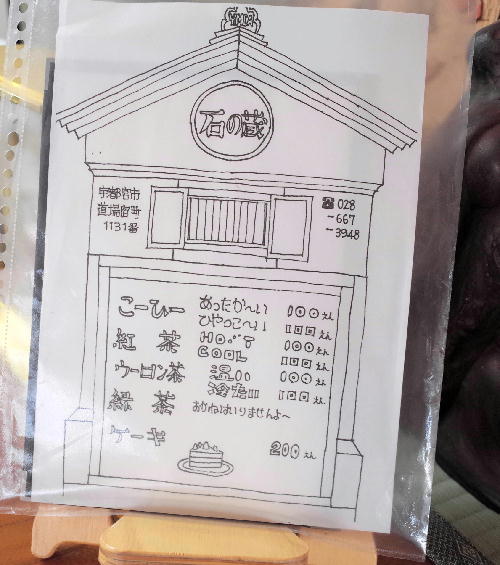 石の蔵
宇都宮市
道場宿町
1131番
☎028
-667
-3948
こーひー あったか〜い 100えん
ひやっこ〜い 100えん
紅茶 HOT 100えん
COOL 100えん
ウーロン茶 温 100えん
冷 100えん
緑茶 おかねはいりませんよ〜
ケーキ 200えん